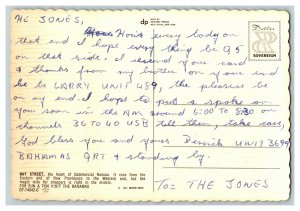 HI JONES,
Hows every body on
that end I hope every thing be QS
on that side. I received your card
& thanks from my better on your end
he be LARRY UNIT 489, the pleasure be
on my end. I hope to put a spoke on
you soon in the AM around 6:00 To
channels 36 TO 40 USB till then, take care,
God bless you and yours Derrick UNIT 3694
BAHAMAS QRT & standing by.
TO: THE JONES
BAY STREET, the heart of Commercial Nassau. It runs from the
Eastern end of New Providence to the Western end, but the
magic mile for shoppers is right in the middle.
FOR SUN & FUN VISIT THE BAHAMAS
dp
Dexter
SOVEREIGN